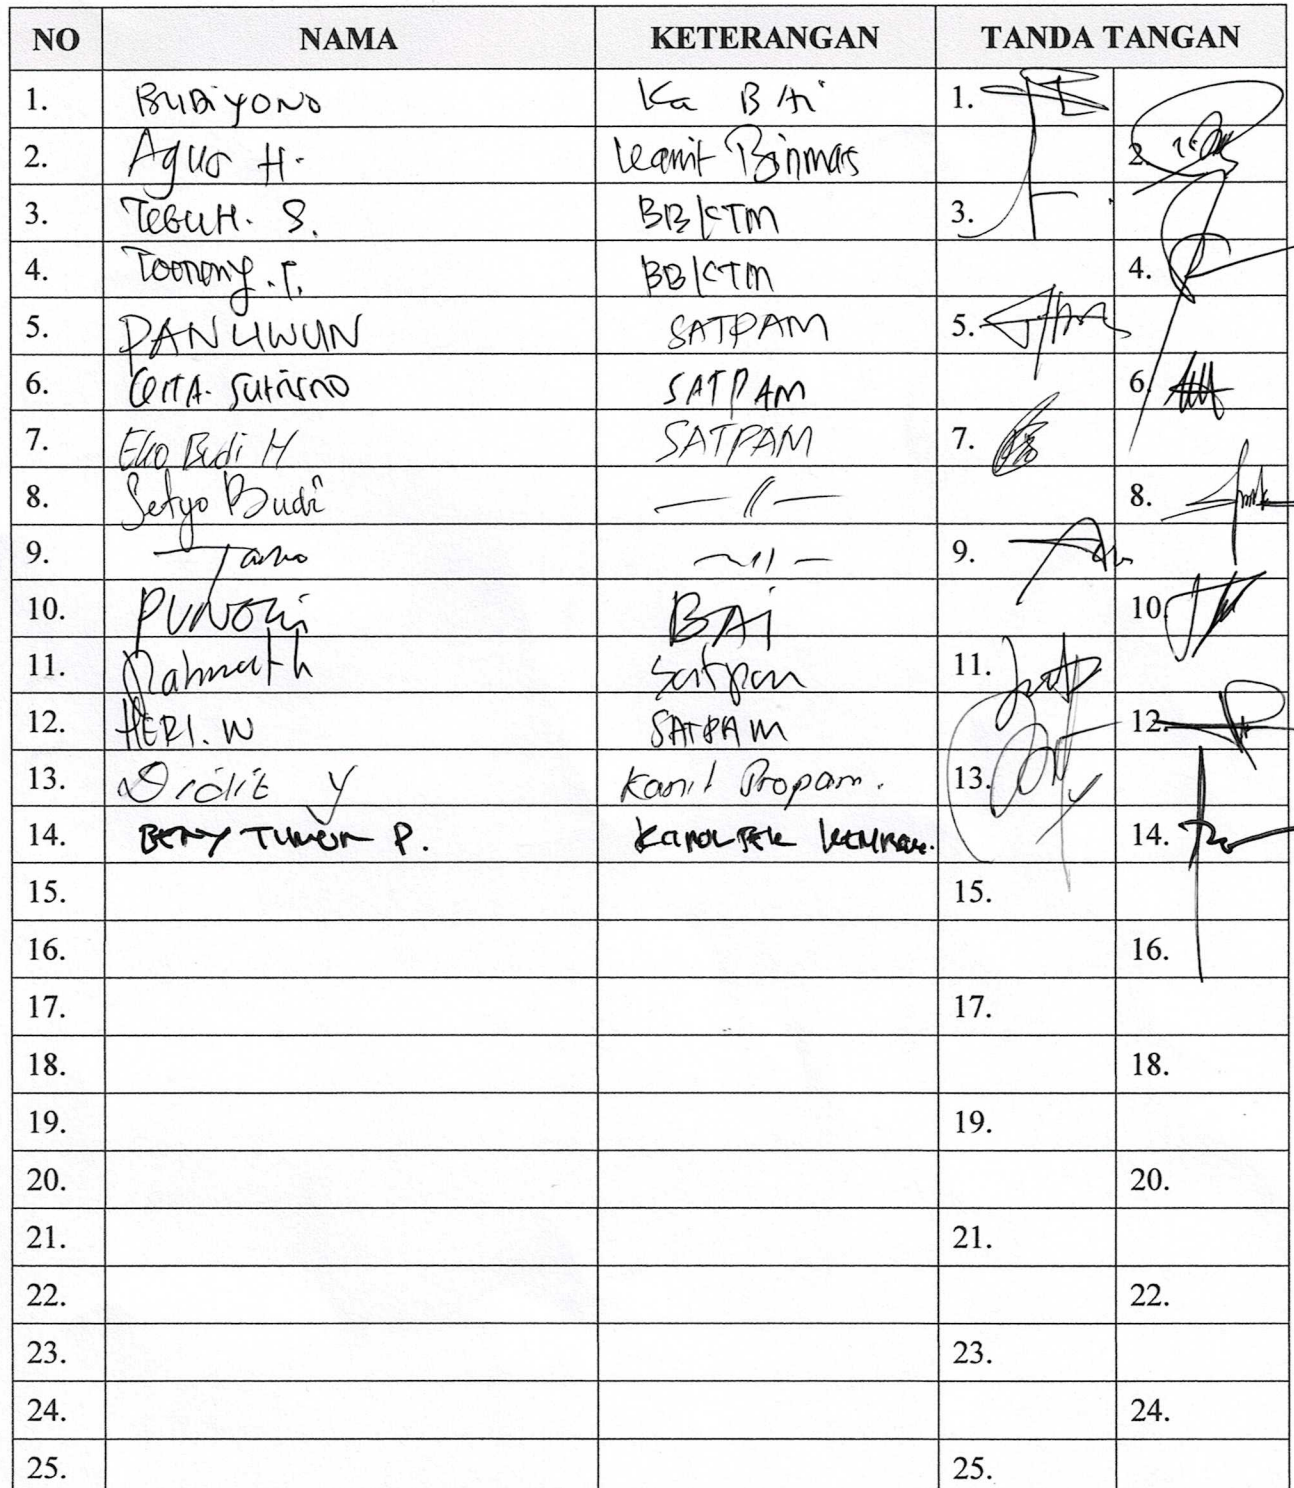 NO NAMA KETERANGAN TANDA TANGAN
1. BUDIYONO Ka BAi 1.
2. Agus H. Kanit Binmas 2.
3. TEGUH. S. BBKTM 3.
4. BBKTM 4.
5. PANUWUN SATPAM 5.
6. SATPAM 6.
7. Eko Budi H SATPAM 7.
8. Setyo Budi — // — 8.
9. — 11 — 9.
10. BAi 10.
11. Satpam 11.
12. HERI. W SATPAM 12.
13. Didit Y Kanit Propam. 13.
14. BENY P. 14.
15. 15.
16. 16.
17. 17.
18. 18.
19. 19.
20. 20.
21. 21.
22. 22.
23. 23.
24. 24.
25. 25.